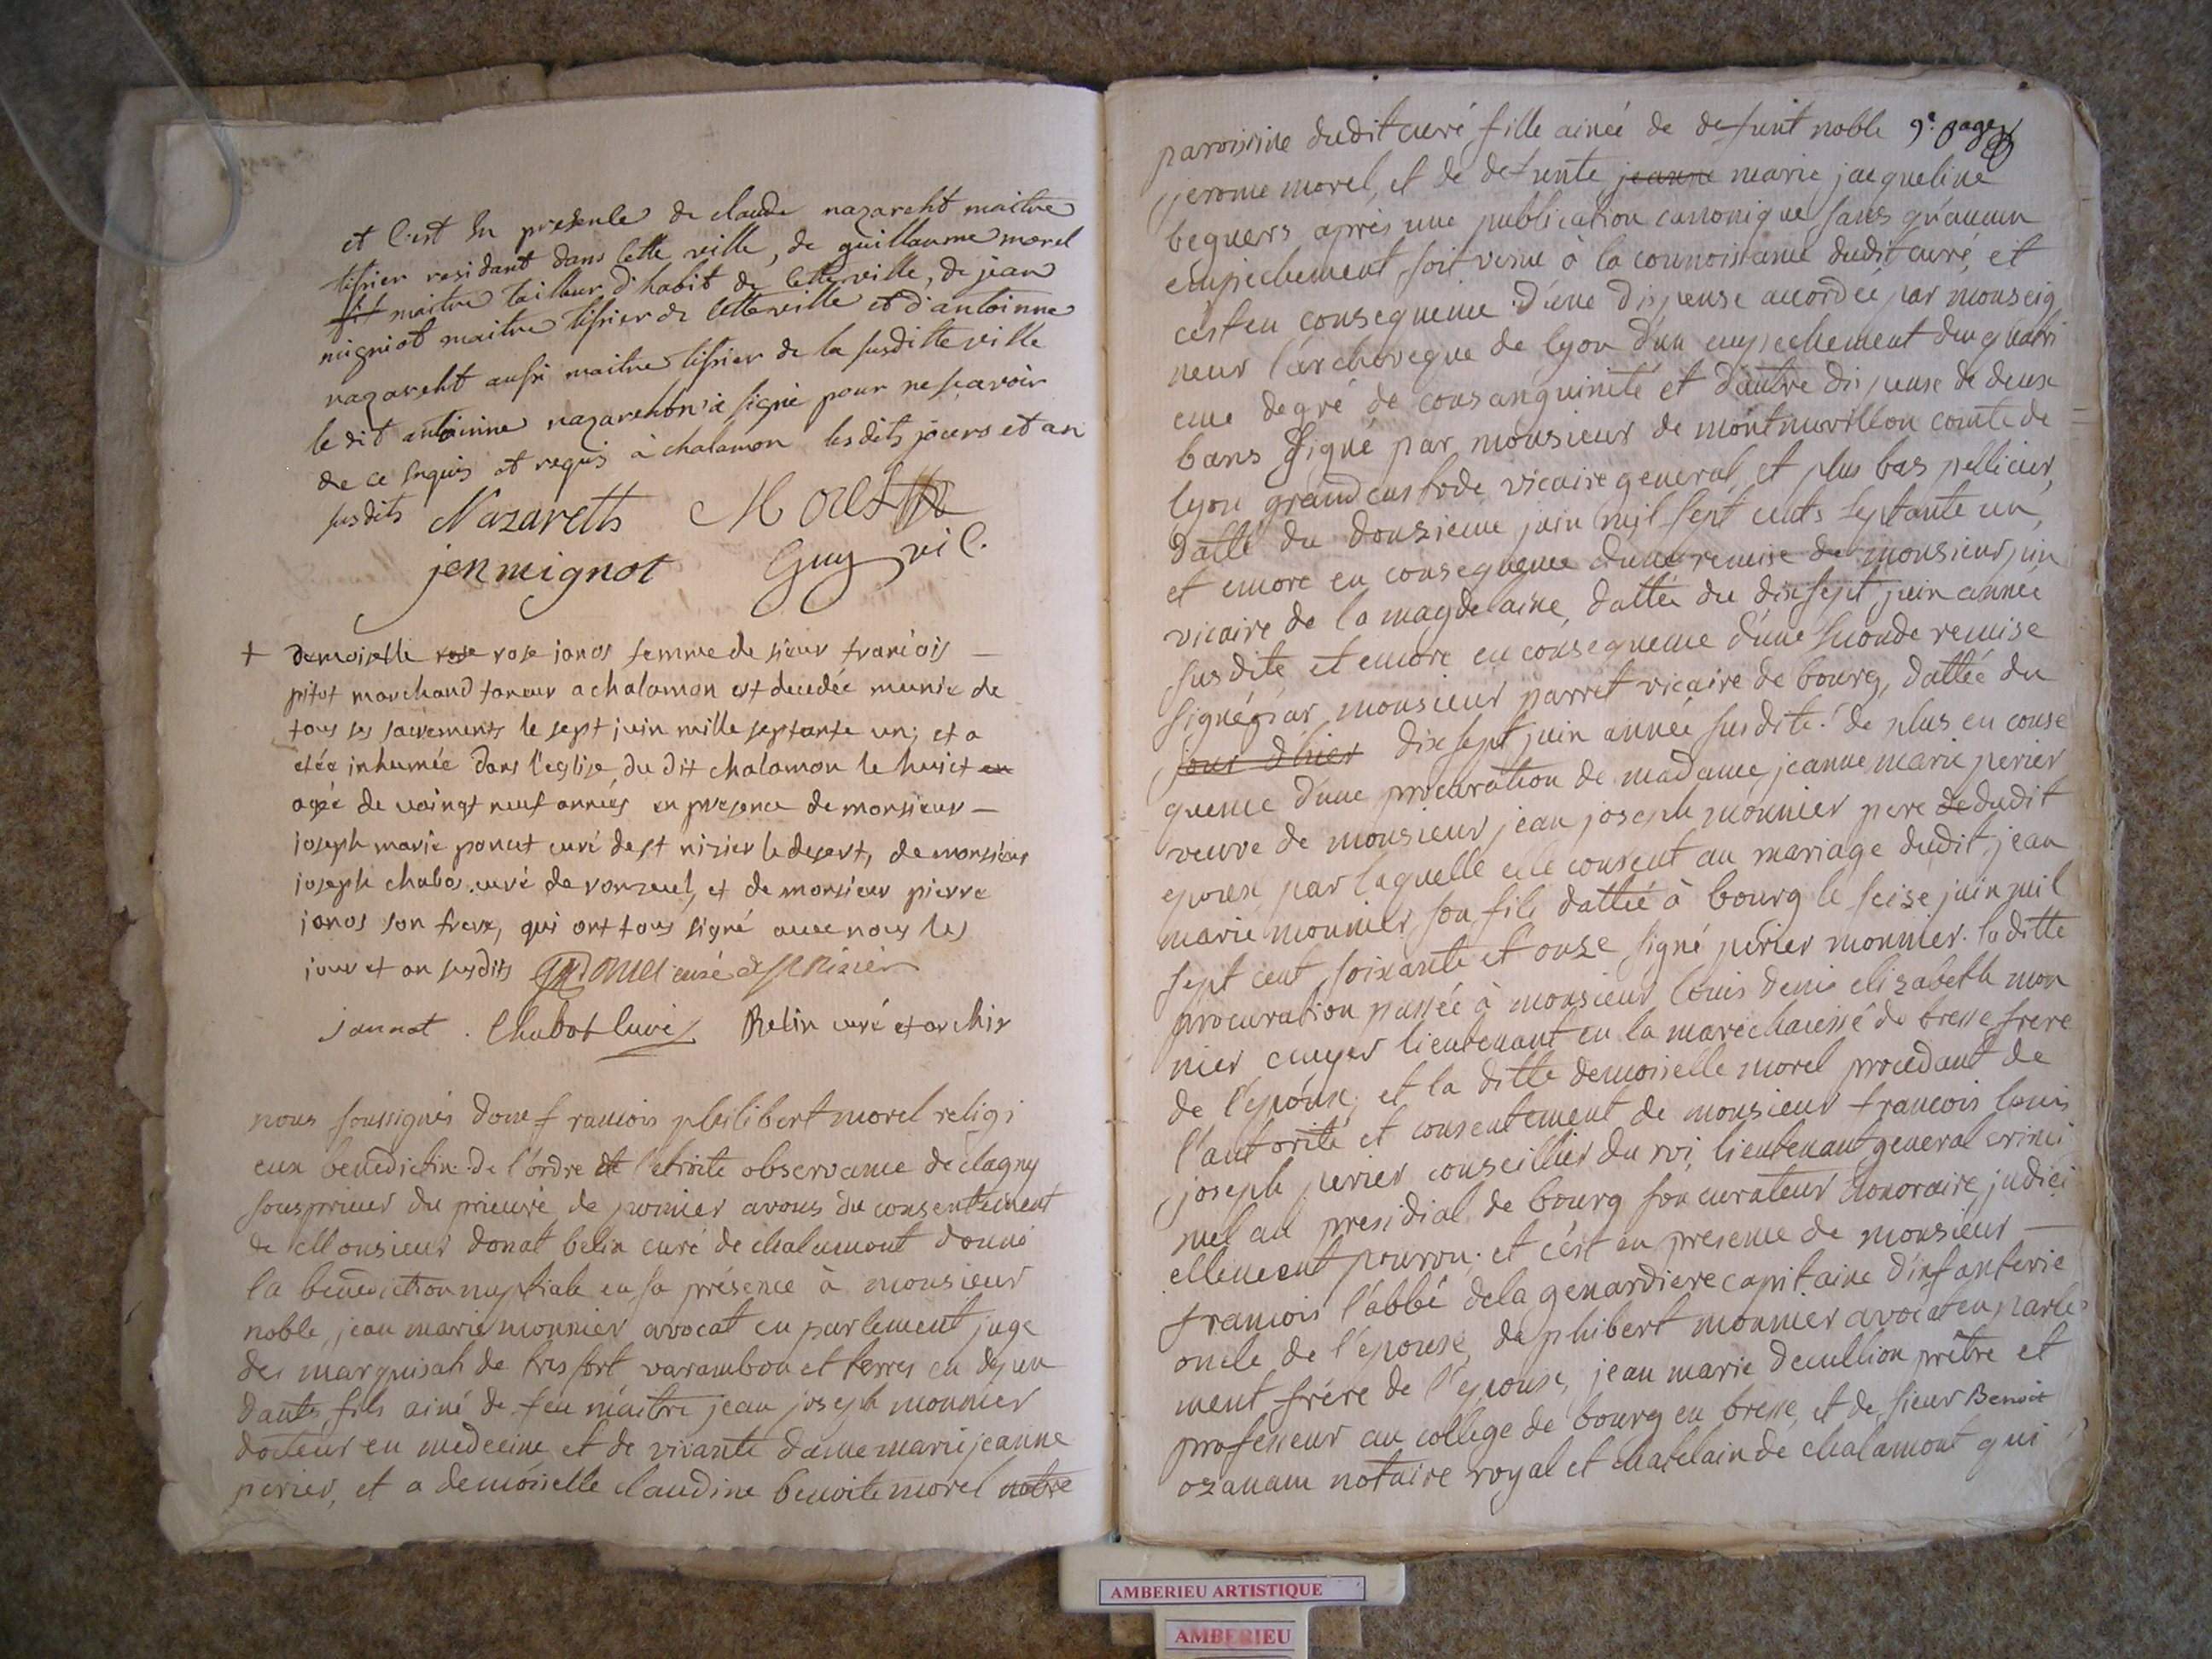 et c'est en presence de claude nazareht maitre
tissier residant dans cette ville, de guillaume morel
maitre tailleur d'habit de cette ville, de jean
migniot maitre tissier de cette ville et d'antoinne
nazareht aussi maitre tissier de la susditte ville
le dit antoinne nazareht n'a signé pour ne sçavoir
de ce enquis et requis à chalamon les dits jours et an
susdits Nazareth Morel
jen mignot Guy vic.
+ demoiselle rose rose janos femme de sieur francois
pitot marchand taneur a chalamon est decedée munie de
tous ses sacrements le sept juin mille septante un; et a
etée inhumée dans l'eglise du dit chalamon le huict en
agée de vaingt neuf années en presence de monsieur
joseph marie poncet curé de st nizier le desert, de monsieur
joseph chabos curé de ronzuel, et de monsieur pierre
janos son frere, qui ont tous signé avec nous les
jour et an susdits Poncet curé de st Nizier
jannot. Chabot curé Belin curé et archip
nous soussignés dom francois philibert morel religi
eux benedictin de l'ordre et l'etroite observance de clugny
sousprieur du prieuré de  avons du consentement
de Monsieur donat belin curé de chalamont donné
la benediction nuptiale en sa présence à monsieur
noble, jean marie monnier avocat en parlement juge
des marquisats de tresfort varambon et terres en depen
dantes fils ainé de feu maitre jean joseph monnier
docteur en medecine et de vivante dame marie jeanne
perier, et a demoiselle claudine benoite morel notre
paroisine dudit curé fille ainée de defunt noble 9e page
jerome morel, et de defunte jeanne marie jacqueline
beguers après une publication canonique sans qu'aucun
empechement soit venu à la connoissance dudit curé, et
c'est en consequence d'une dispense accordée par monseig
neur l'archeveque de lyon d'un empechement du quatri
eme degré de consanguinité et d'autre dispense de deux
bans signé par monsieur de montmorillon comte de
lyon grand custode vicaire general, et plus bas pellicier,
datté du douzieme juin mil sept cents septante un,
et encore en consequence d'une remise de monsieur juin
vicaire de la magdelaine, dattée du dixsept juin année
susdite, et encore en consequence d'une seconde remise
signée par monsieur parret vicaire de bourg, dattée du
jour d'hier dixsept juin année susdite. de plus en conse
quence d'une procuration de madame jeanne marie perier
veuve de monsieur jean joseph monnier pere de dudit
epoux par laquelle elle consent au mariage dudit jean
marie monnier son fils dattée à bourg le seize juin mil
sept cent soixante et onze signé périer monnier. la ditte
procuration passée à monsieur louis denis elizabeth mon
nier ecuyer lieutenant en la marechaussé de bresse frere
de l'époux; et la ditte demoiselle morel procedant de
l'autorité et consentement de monsieur francois louis
joseph perier conseillier du roi, lieutenant general crimi
nel au presidial de bourg son curateur honoraire judici
ellement pourvu. et c'est en presence de monsieur
francois l'abbé dela genardiere capitaine d'infanterie
oncle de l'épouse, de phibert monnier avocat en parle
ment frére de l'epoux, jean marie decullion prêtre et
professeur au collége de bourg en bresse, et de sieur Benoit
ozanam notaire royal et chatelain de chalamont qui
AMBERIEU ARTISTIQUE
AMBERIEU